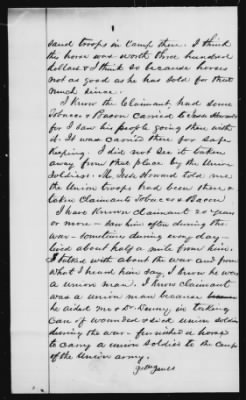 said troops in camp there. I think
the horse was worth three hundred
dollars & I think so because horses
not as good as he has sold for that
much since.
I know the Claimant had some
Tobacco & Bacon carried to
for I saw his people going there with
it. It was carried there for safe
keeping. I did not see it taken
away from that place by the Union
Soldiers. Mr. told me
the Union troops had been there &
taken Claimants Tobacco & Bacon
I have known claimant 20 years
or more – saw him often during the
war – sometimes during every day –
lived about half a mile from him.
I talked with about the war and from
what I heard him say, I know he was
a union man. I know claimant
was a union man because
he aided me & Dr. in taking
care of wounded & sick union soldiers
during the war – furnished a horse
to carry a union soldier to the camp
of the Union army.
Jones